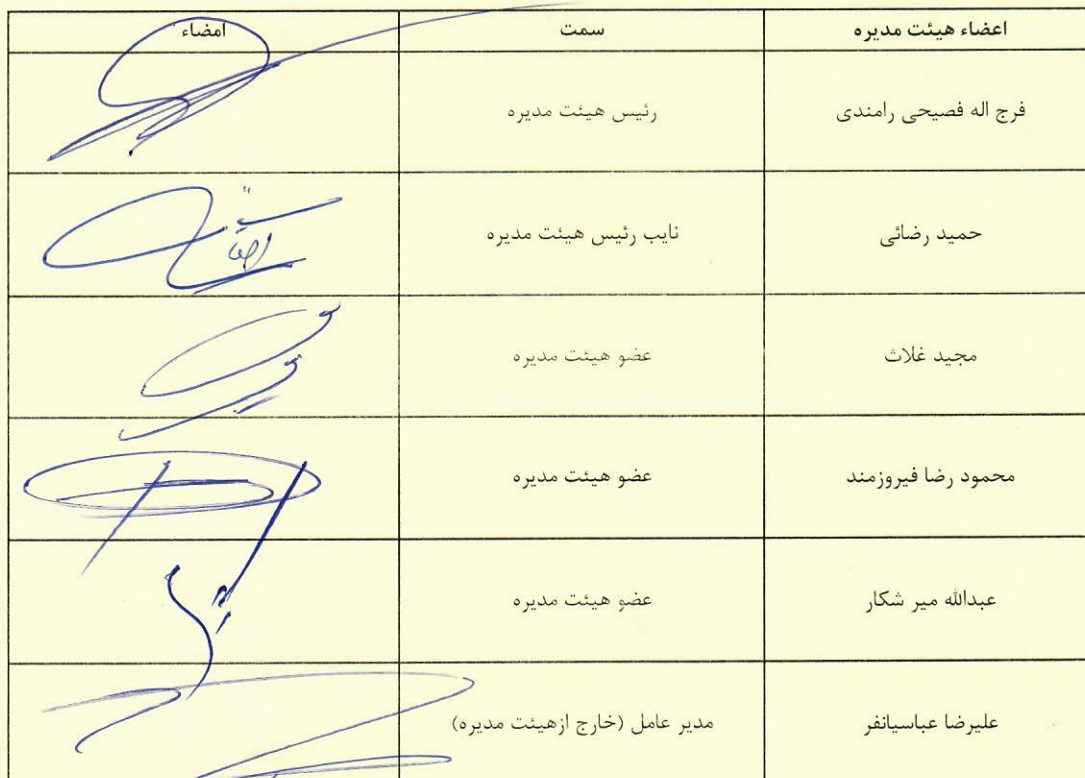 اعضاء هیئت مدیره سمت امضاء
فرج اله فصیحی رامندی رئیس هیئت مدیره
حمید رضائی نایب رئیس هیئت مدیره
مجید غلاث عضو هیئت مدیره
محمود رضا فیروزمند عضو هیئت مدیره
عبدالله میر شکار عضو هیئت مدیره
علیرضا عباسیانفر مدیر عامل (خارج ازهیئت مدیره)